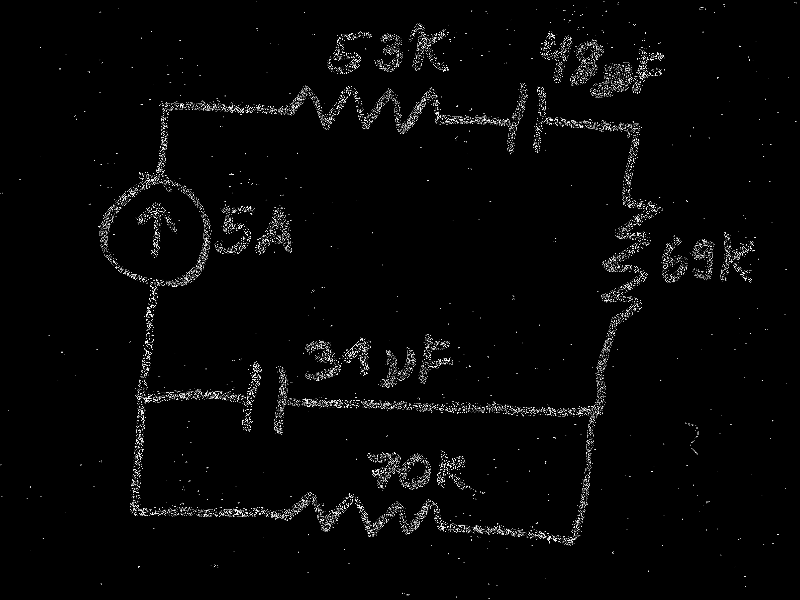 53K
48µF
5A
69K
31µF
70K